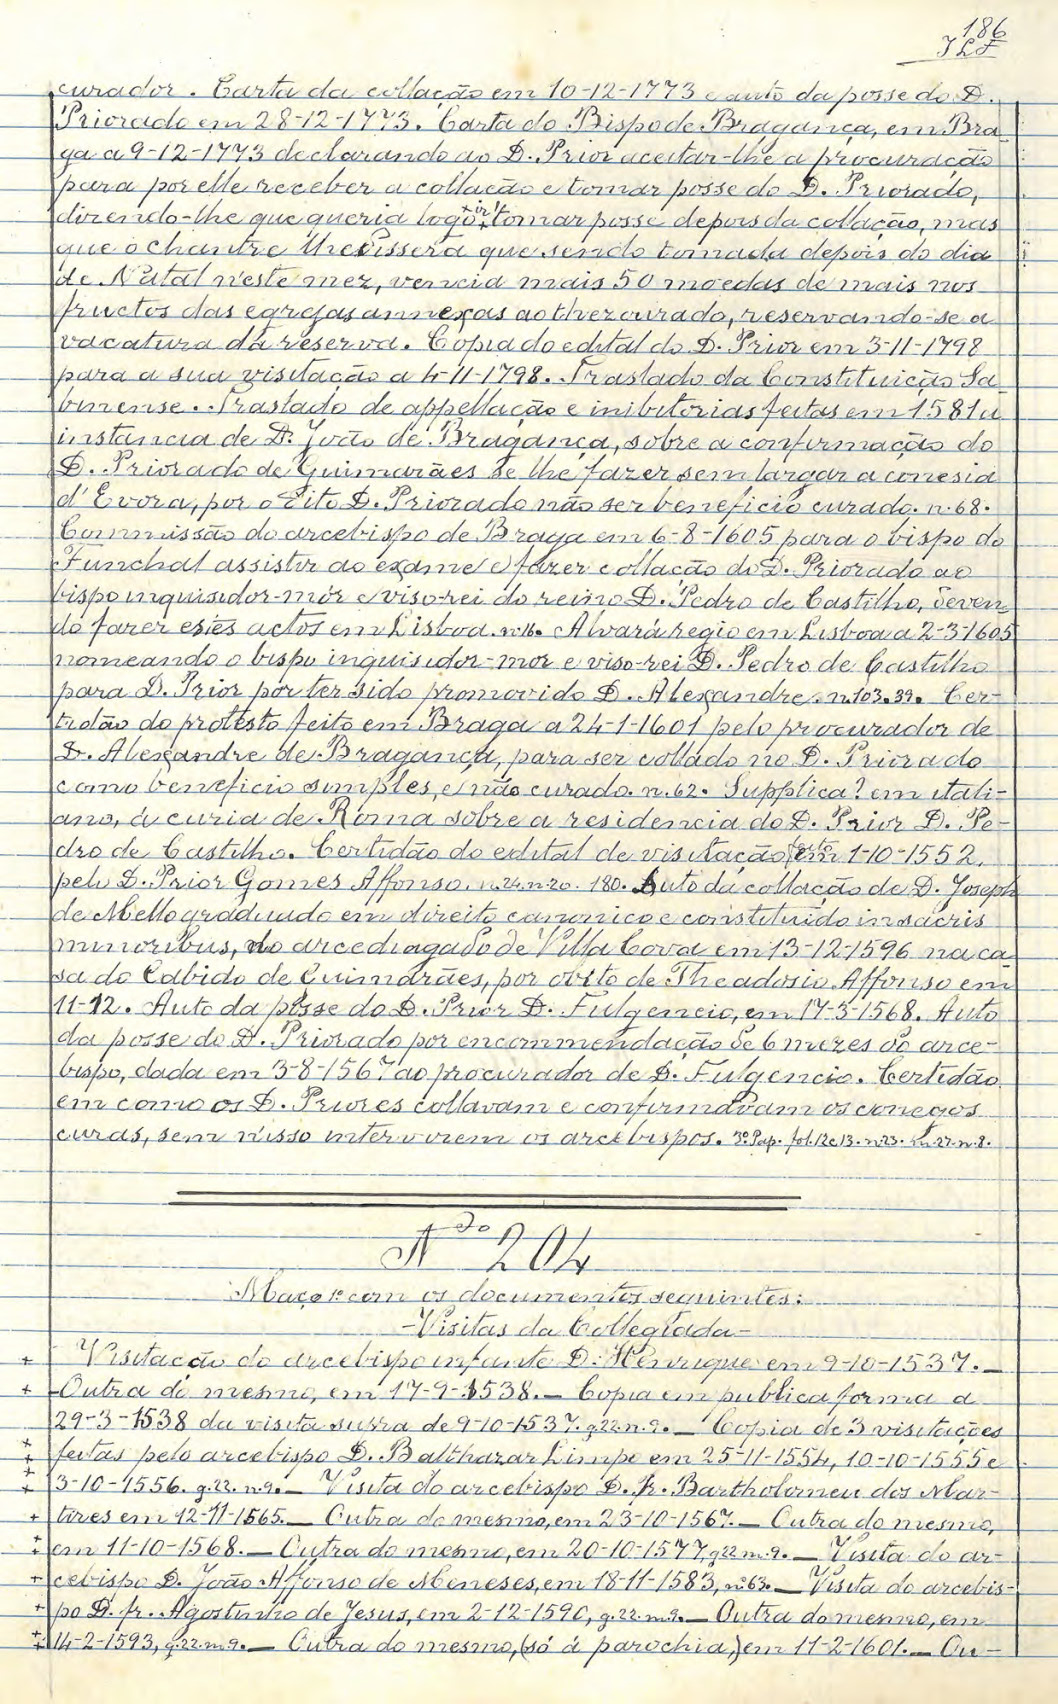 186
JLF
curador. Carta da collação em 10-12-1773 e auto da posse do D.
Priorado em 28-12-1773. Carta do Bispo de Bragança, em Bra-
ga a 9-12-1773 declarando ao D. Prior aceitar-lhe a procuração
para por elle receber a collação e tomar posse do D. Priorado,
dizendo-lhe que queria logo ir tomar posse depois da collação, mas
que o chantre lhe dissera que sendo tomada depois do dia
de Natal n'este mez, vencia mais 50 moedas de mais nos
fructos das egrejas annexas ao thezourado, reservando-se a
vacatura da reserva. Copia do edital do D. Prior em 3-11-1798
para a sua visitação a 4-11-1798. Traslado da Constituição Sa-
binense. Traslado de appellação e inibitorias feitas em 1581 a
instancia de D. João de Bragança, sobre a confirmação do
D. Priorado de Guimarães se lhe fazer sem largar a conesia
d'Evora, por o dito D. Priorado não ser beneficio curado. n. 68.
Commissão do arcebispo de Braga em 6-8-1605 para o bispo do
Funchal assistir ao exame e fazer collação do D. Priorado ao
bispo inquisidor-mór e viso-rei do reino D. Pedro de Castilho, deven-
do fazer estes actos em Lisboa. n. 16. Alvará regio em Lisboa a 2-3-1605
nomeando o bispo inquisidor-mor e viso-rei D. Pedro de Castilho
para D. Prior por ter sido promovido D. Alexandre. n. 103. 39. Cer-
tidão do protesto feito em Braga a 24-1-1601 pelo procurador de
D. Alexandre de Bragança, para ser collado no D. Priorado
como beneficio simples, e não curado. n. 62. Supplica? em itali-
ano, á curia de Roma sobre a residencia do D. Prior D. Pe-
dro de Castilho. Certidão do edital de visitação em 1-10-1552.
pelo D. Prior Gomes Affonso. n. 24. n. 20. 180. Auto da collação de D. Joseph
de Mello graduado em direito canonico e constituido in sacris
minoribus, no arcediagado de Villa Cova em 13-12-1596 na ca-
sa do Cabido de Guimarães, por obito de Theodosio Affonso em
11-12. Auto da posse do D. Prior D. Fulgencio, em 17-3-1568. Auto
da posse do D. Priorado por encommendação de 6 mezes do arce-
bispo, dada em 3-8-1567 ao procurador de D. Fulgencio. Certidão
em como os D. Priores collavam e confirmavam os conegos
curas, sem n'isso intervirem os arcebispos. 3º Pap. fol. 12 e 13. n. 23. n. 27. n. 8.
Nº 204
Maço 1º com os documentos seguintes:
-Visitas da Collegiada-
+ Visitação do arcebispo infante D. Henrique em 9-10-1537. —
+ Outra do mesmo, em 17-9-1538. — Copia em publica forma a
29-3-1538 da visita supra de 9-10-1537. g. 22. n. 9. — Copia de 3 visitações
+ feitas pelo arcebispo D. Balthazar Limpo em 25-11-1554, 10-10-1555 e
+ 3-10-1556. g. 22. n. 9. — Visita do arcebispo D. Fr. Bartholomeu dos Mar-
+ tires em 12-11-1565. — Outra do mesmo, em 23-10-1567. — Outra do mesmo,
+ em 11-10-1568. — Outra do mesmo, em 20-10-1577, g. 22. n. 9. — Visita do ar-
+ cebispo D. João Affonso de Meneses, em 18-11-1583, nº 63. — Visita do arcebis-
+ po D. fr. Agostinho de Jesus, em 2-12-1590, g. 22. n. 9. — Outra do mesmo, em
+ 14-2-1593, g. 22. n. 9. — Outra do mesmo, (só á parochia,) em 11-2-1601. — Ou-